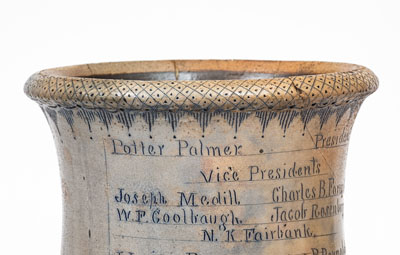 Potter Palmer. President
Vice Presidents
Joseph Medill Charles B. Far
W.F. Coolbaugh. Jacob Rosen
N.K. Fairbank.